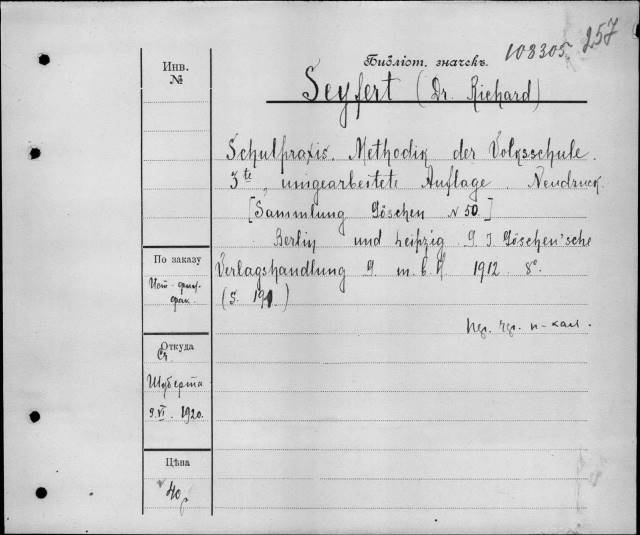 108305 257
Инв.
№
Библіот. значекъ.
Seyfert (Dr. Richard)
Schulpraxis. Methodik der Volksschule.
3te, umgearbeitete Auflage. Neudruck.
[Sammlung Göschen № 50.]
Berlin und Leipzig G. J. Göschen'sche
Verlagshandlung G. m. b. H. 1912. 8°.
(S. 191.)
По заказу
Ист.-фил.
фак.
Откуда
Шуберта
9.VI.1920.
Цѣна
40